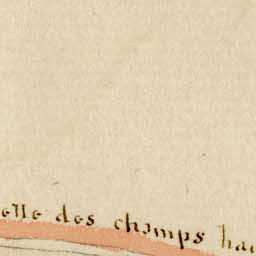 elle des champs hau